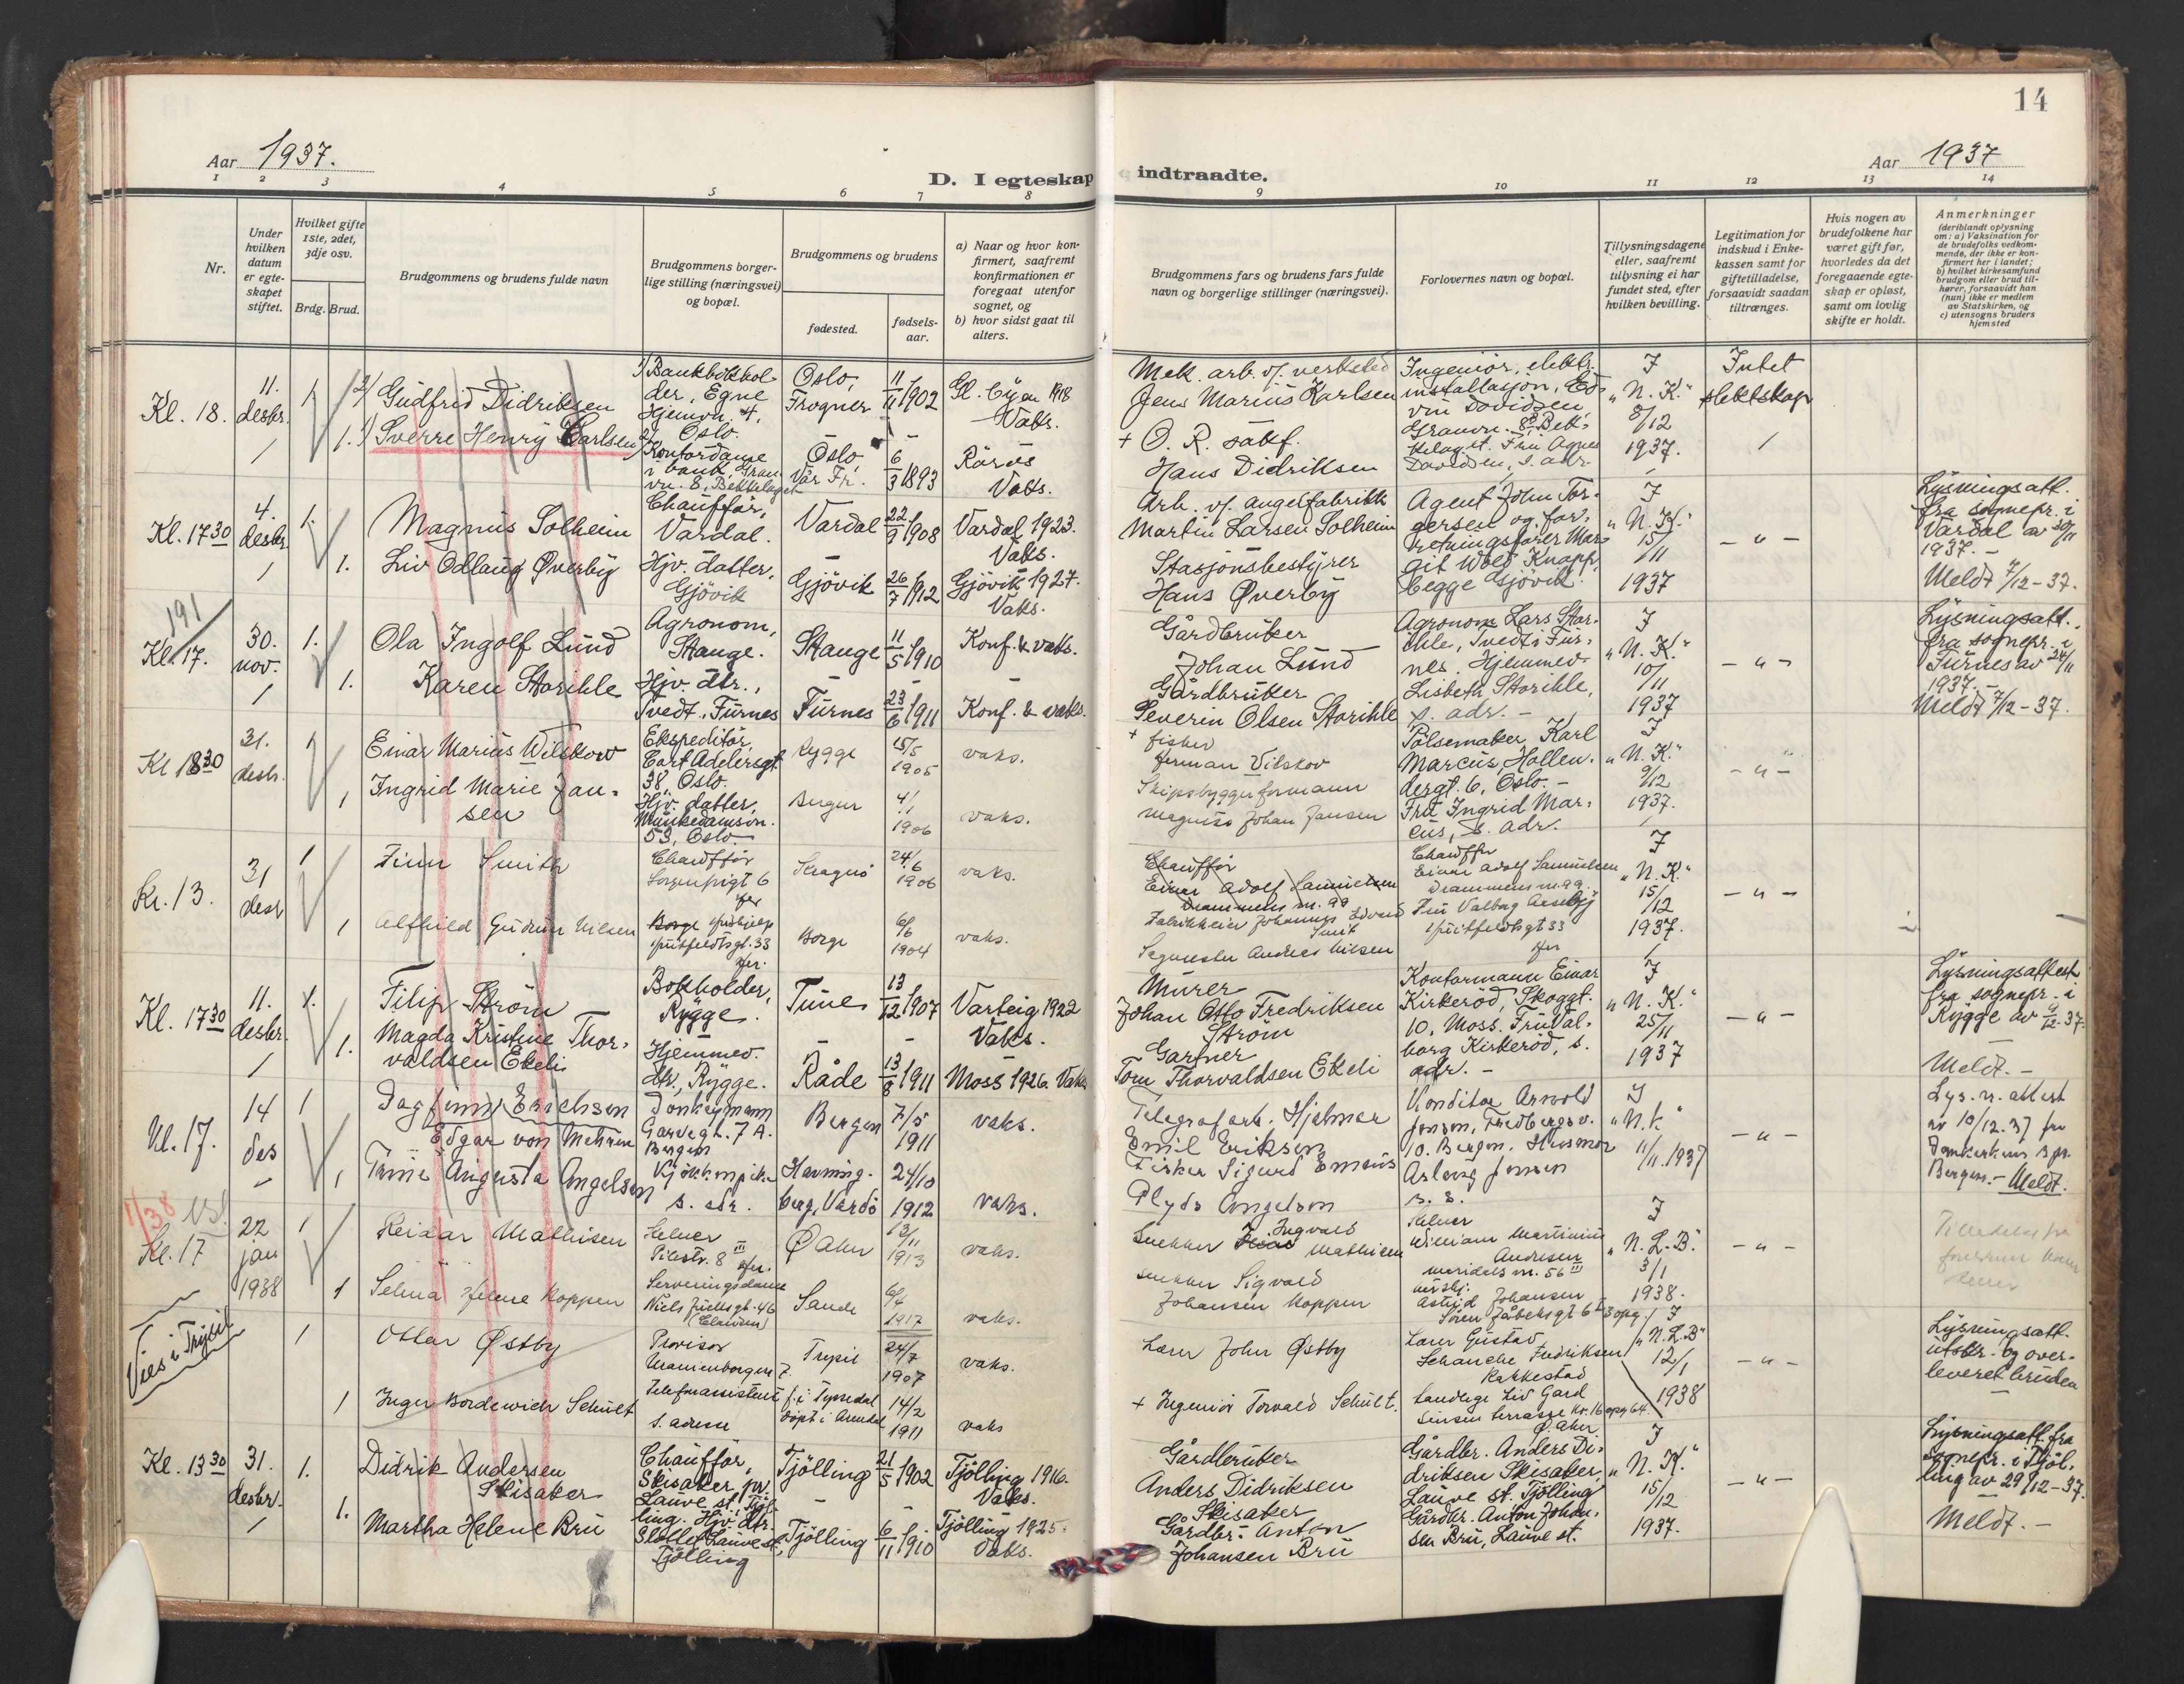 14
Aar 1937.
D. I egteskap indtraadte.
Aar 1937
1 2 3 4 5 6 7 8 9 10 11 12 13 14
Nr.
Under hvilken datum er egteskapet stiftet.
Hvilket gifte 1ste, 2det, 3dje osv.
Brdg. Brud.
Brudgommens og brudens fulde navn
Brudgommens borgerlige stilling (næringsvei) og bopæl.
Brudgommens og brudens
fødested.
fødselsaar.
a) Naar og hvor konfirmert, saafremt konfirmationen er foregaat utenfor sognet, og
b) hvor sidst gaat til alters.
Brudgommens fars og brudens fars fulde navn og borgerlige stillinger (næringsvei).
Forlovernes navn og bopæl.
Tillysningsdagene eller, saafremt tillysning ei har fundet sted, efter hvilken bevilling.
Legitimation for indskud i Enkekassen samt for giftetilladelse, forsaavidt saadan tiltrænges.
Hvis nogen av brudefolkene har været gift før, hvorledes da det foregaaende egteskap er opløst, samt om lovlig skifte er holdt.
Anmerkninger
(deriblandt oplysning om: a) Vaksination for de brudefolks vedkommende, der ikke er konfirmert her i landet;
b) hvilket kirkesamfund brudgom eller brud tilhører, forsaavidt han (hun) ikke er medlem av Statskirken, og
c) utensogns bruders hjemsted
Kl. 18.
11. desbr.
1.
2) Gudfrid Didriksen
1. 1) Sverre Henry Carlsen
1) Bankbokholder, Egne Hjemvn. 4, Oslo.
2) Kontordame i bank, Granvn. 8, Bekkelaget
Oslo, Frogner
11/11 1902
Gl. Byen 1918
Vaks.
Oslo, Vår Fr.
6/3 1893
Røros
Vaks.
Mek. arb. v/ verksted
Jens Marius Karlsen
+ O. R. sakf.
Hans Didriksen
Ingeniør, elektr. installasjon, Edvin Davidsen, Granvn. 8, Bekkelaget. Fru Agnes Davidsen, s. adr.
I "N. K." 8/12 1937.
Intet slektskap
Kl. 17 30
4. desbr.
1.
Magnus Solheim
1.
Liv Odlaug Øverby
Chauffør, Vardal.
Hjv. datter, Gjøvik
Vardal
22/9 1908
Vardal 1923.
Vaks.
Gjøvik
26/7 1912
Gjøvik 1927.
Vaks.
Arb. v/ angelfabrikk
Martin Larsen Solheim
Stasjonsbestyrer
Hans Øverby
Agent John Torgersen og forretningsfører Margit Wold Knapp, begge Gjøvik.
I "N. K." 15/11 1937
- " -
Lysningsatt. fra sognepr. i Vardal av 30/11 1937. -
Meldt 7/12-37.
191
Kl. 17.
30. nov.
1.
Ola Ingolf Lund
1.
Karen Storihle
Agronom, Stange.
Hjv. dtr., Tvedt, Furnes
Stange
11/5 1910
Konf. & vaks.
Furnes
23/6 1911
Konf. & vaks.
Gårdbruker
Johan Lund
Gårdbruker
Severin Olsen Storihle
Agronom Lars Storihle, Tvedt i Furnes. Hjemmev. Lisbeth Storihle, s. adr. -
I "N. K." 10/11 1937
- " -
Lysningsatt. fra sognepr. i Furnes av 24/11 1937. -
Meldt 7/12-37.
Kl 18 30
31. desbr.
1
Einar Marius Wilskow
1
Ingrid Marie Jansen
Ekspeditør, Cort Adelersgt. 38, Oslo.
Hjv. datter, Munkedamsvn. 53, Oslo.
Rygge
15/5 1905
vaks.
Bergen
4/1 1906
vaks.
+ fisker
Herman Vilskov
Skipsbyggerformann
Magnus Johan Jansen
Pølsemaker Karl Marcus, Hollendergt. 6, Oslo. -
Fru Ingrid Marcus, s. adr.
I "N. K." 9/12 1937.
- " -
Kl. 13.
31 desb
1
Finn Smith
1
Alfhild Gudrun Nilsen
Chauffør
Sorgenfrigt 6
Huitfeldtsgt. 33
24/6 1906
vaks.
Borge
6/6 1904
vaks.
Chauffør
Einar Adolf Samuelsen
Drammens v. 99
Fabrikkeier Johannes Edvard Smit
Andreas Nilsen
Chauffør
Einar Adolf Samuelsen
Drammensv. 99
Fru Valborg
Huitfeldtsgt 33
I "N. K." 15/12 1937.
- " -
Kl. 17 30
11. desbr.
1.
Filip Strøm
1.
Magda Kristine Thorvaldsen Ekeli
Bokholder, Rygge.
Hjemmev. dtr., Rygge.
Tune
13/12 1907
Varteig 1922
Vaks.
Råde
13/8 1911
Moss 1926. Vaks
Murer
Johan Otto Fredriksen Strøm
Gartner
Tom Thorvaldsen Ekeli
Kontormann Einar Kirkerød, Skoggt. 10, Moss. Fru Valborg Kirkerød, s. adr. -
I "N. K." 25/11 1937
- " -
Lysningsattest fra sognepr. i Rygge av 9/12-37.
Meldt. -
Kl. 17.
14 des
1
Dagfinn Erichsen
Edgar von Mehren
1
Augusta Angelsen
Donkeymann
Garvegt. 7 A. Bergen
s. adr.
Bergen
7/5 1911
vaks.
Havningberg, Vardø
24/10 1912
vaks.
Telegrafarb. Hjalmar Emil Eriksen
Fisker Sigurd
Angelsen
Konditor Arnold Jensen, Fredbergsv. 10, Bergen. Husmor Aslaug Jensen
s. s.
I "N. K." 11/11. 1937
- " -
Lys.n. attest av 10/12.37 fra Domkirkens s.pr. Bergen. - Meldt.
1/38
Kl. 17
22 jan 1938
1
Reidar Mathisen
1
Selma Helene Koppen
Kelner
Pilestr. 8 III
Serveringsdame
Niels Juelsgt. 46
Ø Aker
13/11 1913
vaks.
Sande
6/4 1917
vaks.
Snekker Ingvald Mathisen
Snekker Sigvald Johansen Koppen
Kelner
William Martinius Andresen
Maridalsv. 56 III
Astrid Johansen
Søren Jåbeksgt 6
I "N. L. B." 3/1 1938.
- " -
Vies i Trysil
1
Ottar Østby
1
Inger Bordewich Schult
Provisor
Uranienborgvn 7.
Telefonassistent
s. adresse
Trysil
24/7 1907
vaks.
f. i Tyssedal
døpt i Arendal
14/2 1911
vaks
Lærer John Østby
+ Ingeniør Torvald Schult.
Lærer Gustav Schanche Fredriksen
Rakkestad
Tandlege Liv Gard
Sinsen terrasse
Ø. Aker
I "N. L. B" 12/1 1938
- " -
Lysningsatt. utstr. og overleveret bruden
Kl. 13 30
31. desbr.
1.
Didrik Andersen Skisaker
1.
Martha Helene Bru
Chauffør, Skisaker, pr. Lauve st. Tjølling.
Hjv. dtr. Lauve st, Tjølling
Tjølling
21/5 1902
Tjølling 1916.
Vaks.
Tjølling
6/11 1910
Tjølling 1925.
Vaks.
Gårdbruker
Anders Didriksen Skisaker
Gårdbr. Anton Johansen Bru
Gårdbr. Anders Didriksen Skisaker, Lauve st. Tjølling
Gårdbr. Anton Johansen Bru, Lauve st.
I "N. K." 15/12 1937.
- " -
Lysningsatt. fra sognepr. i Tjølling av 29/12-37.
Meldt. -